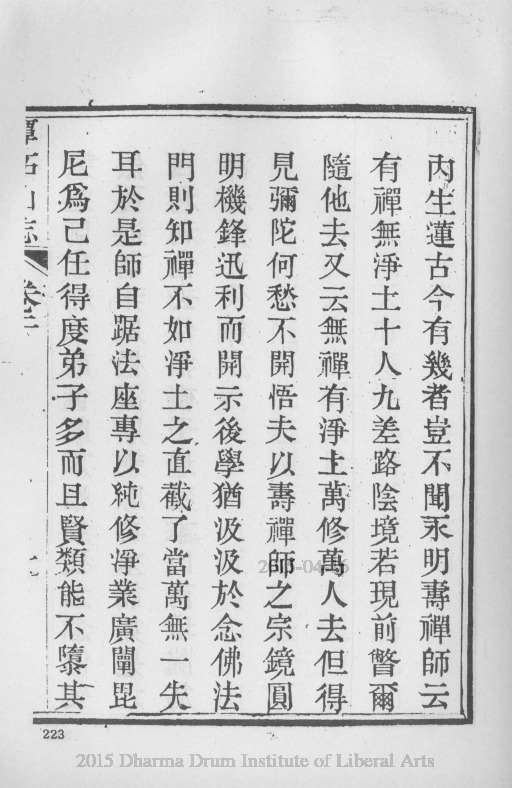 內生蓮古今有幾者豈不聞永明壽禪師云
有禪無淨土十人九差路陰境若現前瞥爾
隨他去又云無禪有淨土萬修萬人去但得
見彌陀何愁不開悟夫以壽禪師之宗鏡圓
明機鋒迅利而開示後學猶汲汲於念佛法
門則知禪不如淨土之直截了當萬無一失
耳於是師自踞法座專以純修淨業廣闡毘
尼為己任得度弟子多而且賢類能不隳其
潭柘山志 卷二
223
2015 Dharma Drum Institute of Liberal Arts